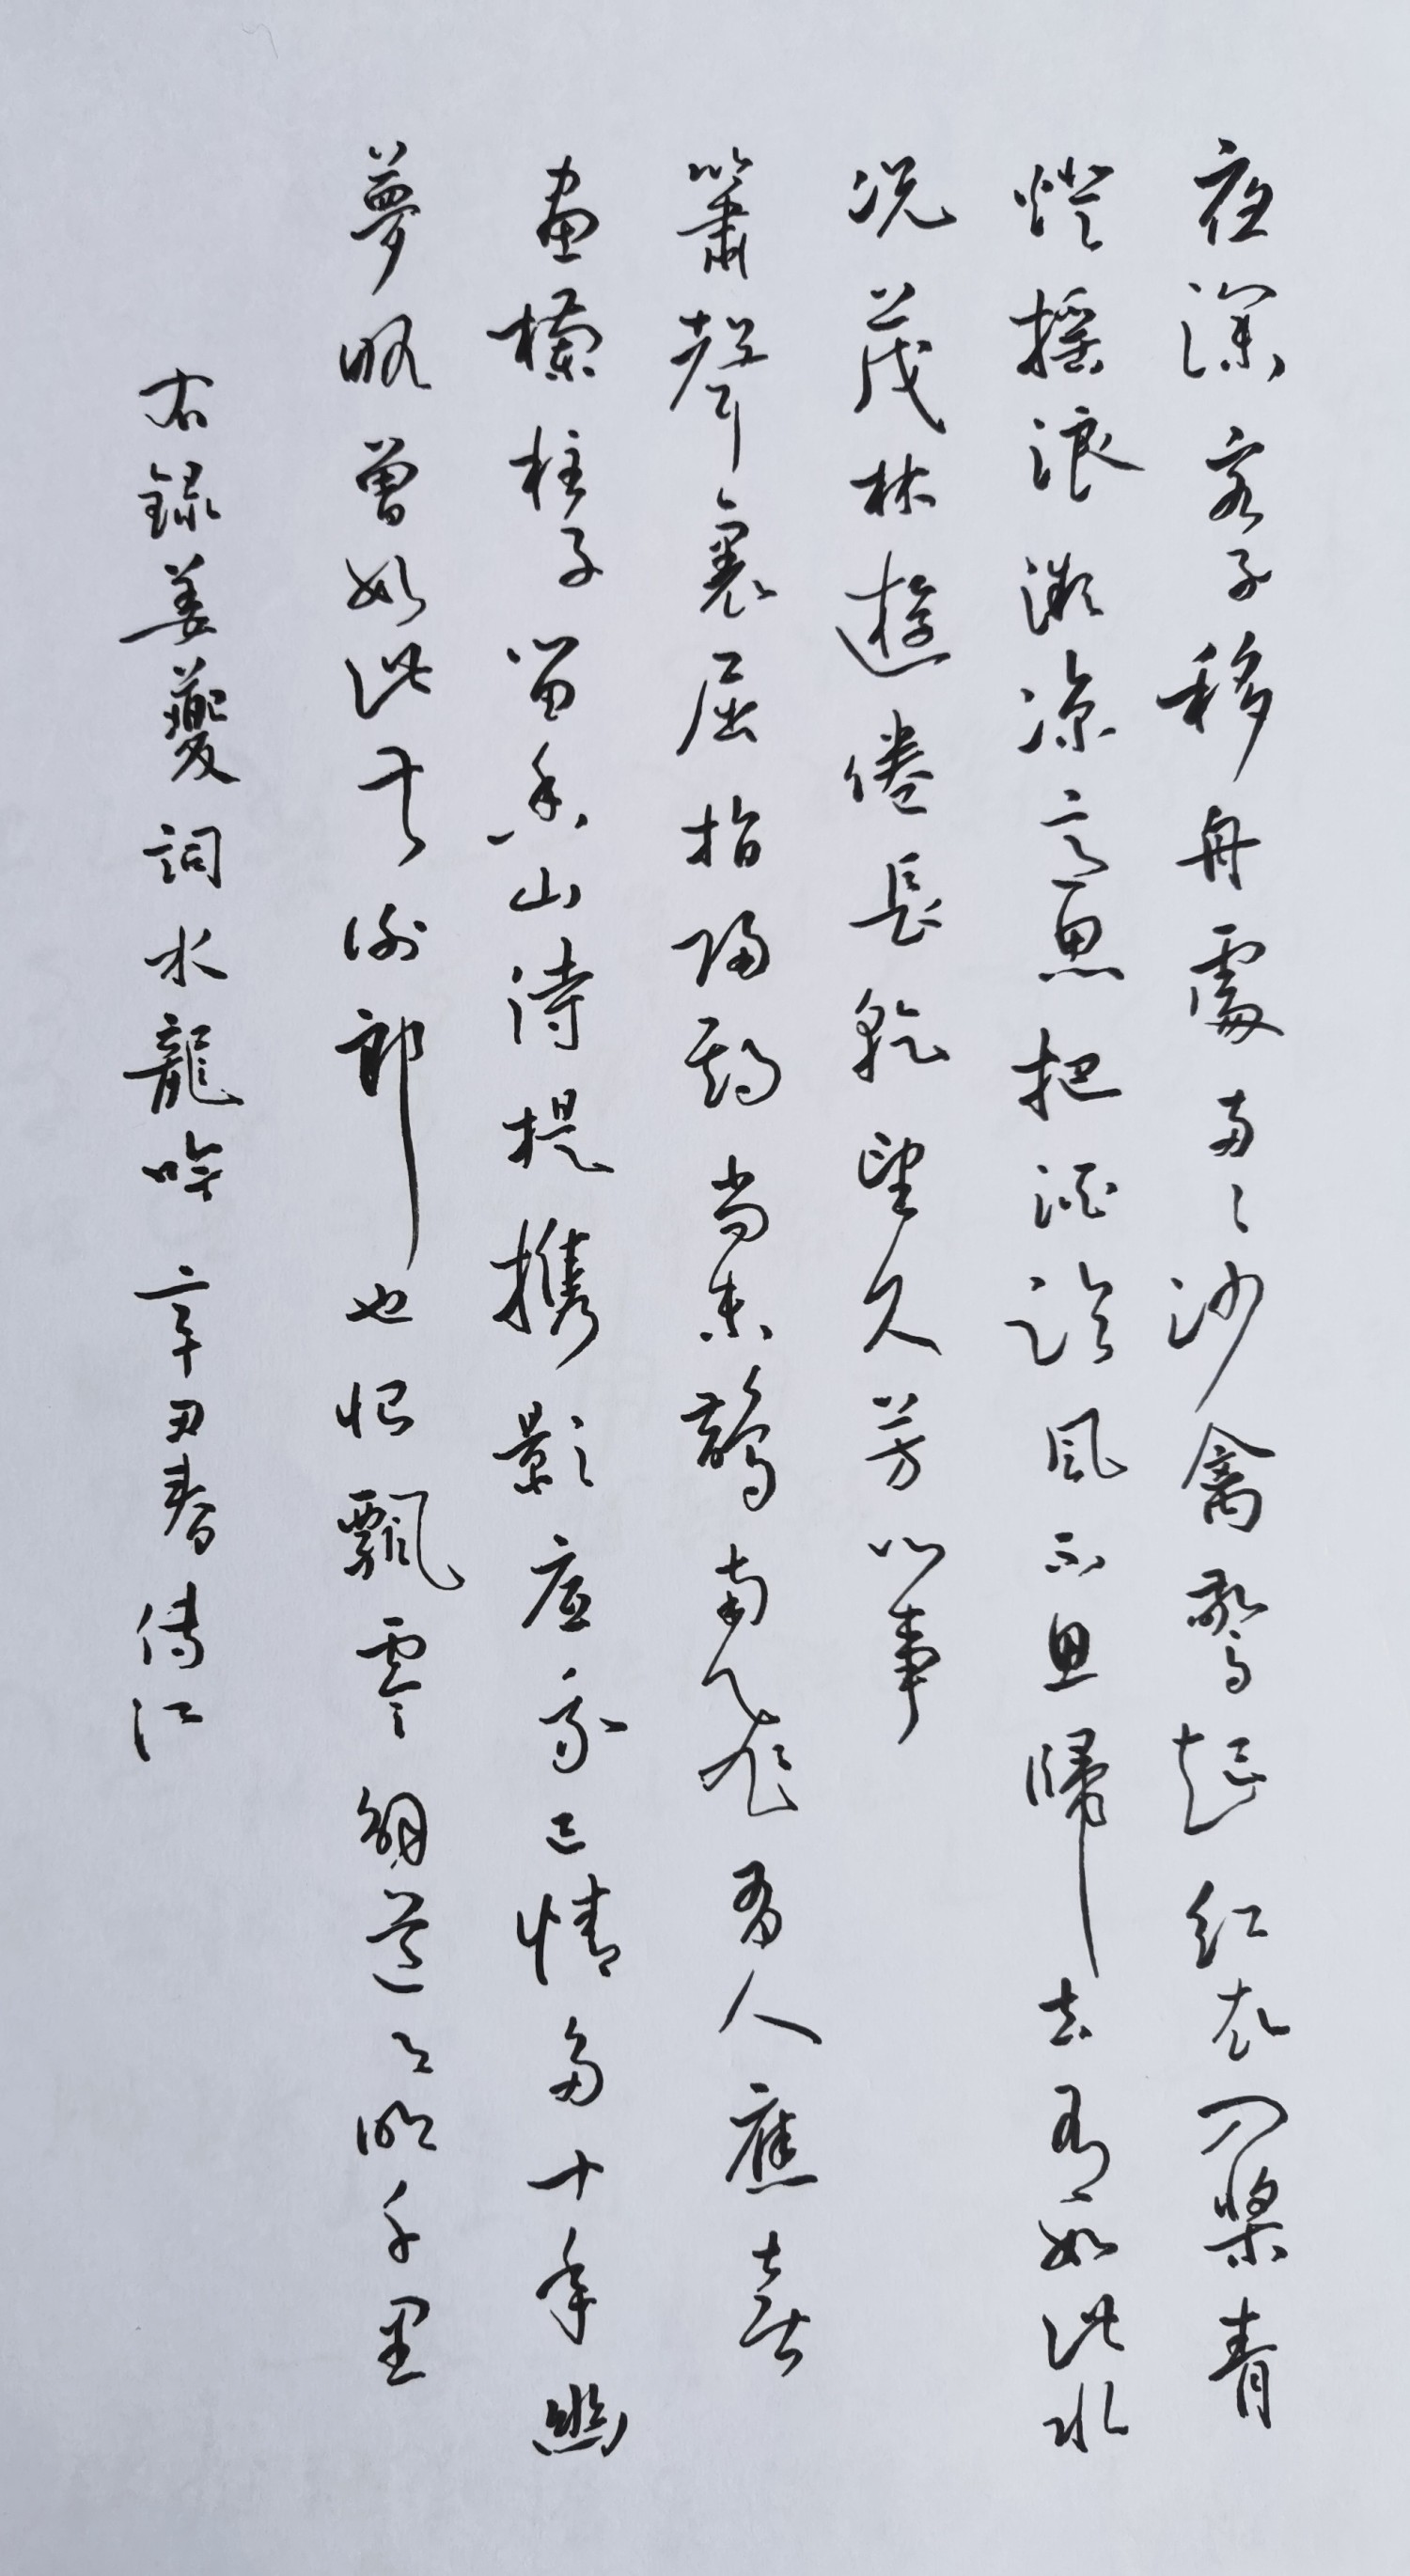 夜深客子移舟處兩〻沙禽驚起紅衣入槳青
燈搖浪微涼意思把酒臨風不思歸去有如此水
況茂林遊倦長乾望久芳心事
簫聲裏屈指歸期尚未鵲南飛有人應喜
畫欄桂子留香小待提攜影底我已情多十年幽
夢略曾如此甚謝郎也恨飄零解道月明千里
右錄姜夔詞水龍吟 辛丑春 傳江